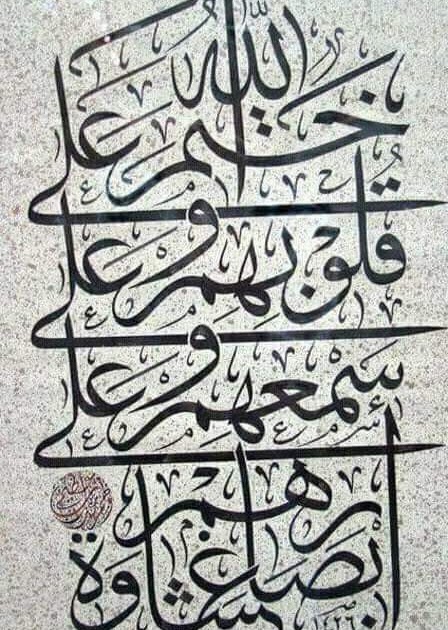 ختم الله على
قلوبهم وعلى
سمعهم وعلى
أبصارهم
غشاوة